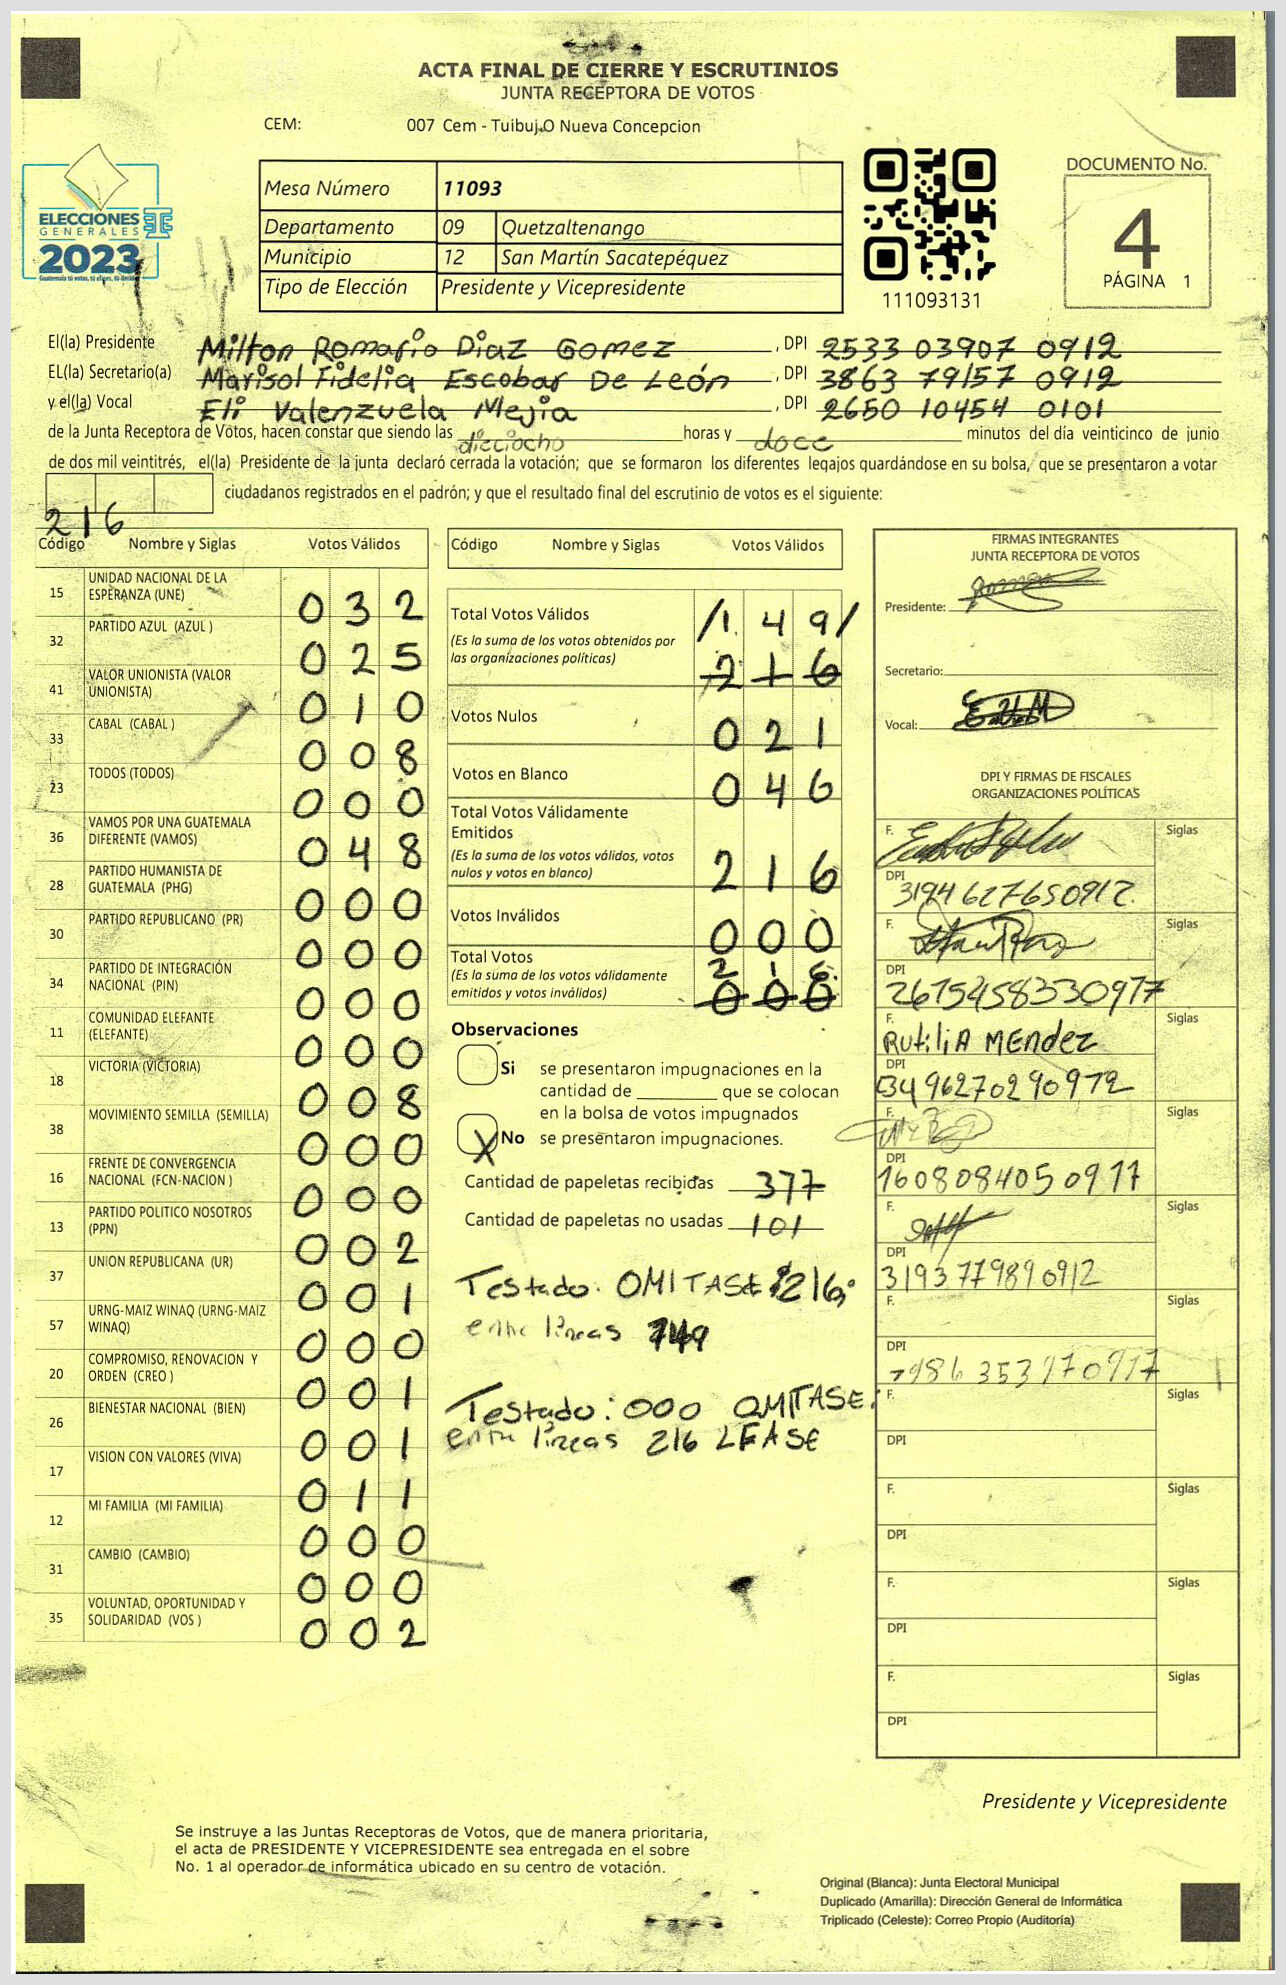 ACTA FINAL DE CIERRE Y ESCRUTINIOS
JUNTA RECEPTORA DE VOTOS
CEM: 007 Cem - Tuibuj,O Nueva Concepcion
ELECCIONES
GENERALES
2023
Mesa Número 11093
Departamento 09 Quetzaltenango
Municipio 12 San Martín Sacatepéquez
Tipo de Elección Presidente y Vicepresidente
111093131
DOCUMENTO No.
4
PÁGINA 1
El(la) Presidente Milton Romario Diaz Gomez, DPI 2533 03907 0912
EL(la) Secretario(a) Marisol Fidelia Escobar De León, DPI 3863 79157 0912
y el(la) Vocal Eli Valenzuela Mejia, DPI 2650 10454 0101
de la Junta Receptora de Votos, hacen constar que siendo las dieciocho horas y doce minutos del día veinticinco de junio
de dos mil veintitrés, el(la) Presidente de la junta declaró cerrada la votación; que se formaron los diferentes legajos guardándose en su bolsa, que se presentaron a votar
216 ciudadanos registrados en el padrón; y que el resultado final del escrutinio de votos es el siguiente:
Código Nombre y Siglas Votos Válidos
15 UNIDAD NACIONAL DE LA ESPERANZA (UNE) 032
32 PARTIDO AZUL (AZUL ) 025
41 VALOR UNIONISTA (VALOR UNIONISTA) 010
33 CABAL (CABAL ) 008
23 TODOS (TODOS) 000
36 VAMOS POR UNA GUATEMALA DIFERENTE (VAMOS) 048
28 PARTIDO HUMANISTA DE GUATEMALA (PHG) 000
30 PARTIDO REPUBLICANO (PR) 000
34 PARTIDO DE INTEGRACIÓN NACIONAL (PIN) 000
11 COMUNIDAD ELEFANTE (ELEFANTE) 000
18 VICTORIA (VICTORIA) 008
38 MOVIMIENTO SEMILLA (SEMILLA) 000
16 FRENTE DE CONVERGENCIA NACIONAL (FCN-NACION ) 000
13 PARTIDO POLITICO NOSOTROS (PPN) 002
37 UNION REPUBLICANA (UR) 001
57 URNG-MAIZ WINAQ (URNG-MAIZ WINAQ) 000
20 COMPROMISO, RENOVACION Y ORDEN (CREO ) 001
26 BIENESTAR NACIONAL (BIEN) 001
17 VISION CON VALORES (VIVA) 011
12 MI FAMILIA (MI FAMILIA) 000
31 CAMBIO (CAMBIO) 000
35 VOLUNTAD, OPORTUNIDAD Y SOLIDARIDAD (VOS ) 002
Código Nombre y Siglas Votos Válidos
Total Votos Válidos /149/
(Es la suma de los votos obtenidos por
las organizaciones políticas) 216
Votos Nulos 021
Votos en Blanco 046
Total Votos Válidamente
Emitidos
(Es la suma de los votos válidos, votos
nulos y votos en blanco) 216
Votos Inválidos 000
Total Votos 216
(Es la suma de los votos válidamente
emitidos y votos inválidos) 000
Observaciones
Si se presentaron impugnaciones en la
cantidad de ________ que se colocan
en la bolsa de votos impugnados
X No se presentaron impugnaciones.
Cantidad de papeletas recibidas 377
Cantidad de papeletas no usadas 101
Testado. OMITASE 216
entre lineas 149
Testado: 000 OMITASE:
entre lineas 216 LEASE
FIRMAS INTEGRANTES
JUNTA RECEPTORA DE VOTOS
Presidente:
Secretario:
Vocal:
DPI Y FIRMAS DE FISCALES
ORGANIZACIONES POLÍTICAS
F. Siglas
DPI 3194627650912
F. Siglas
DPI 2675458330917
F. Rutilia Mendez Siglas
DPI 3496270290912
F. Siglas
DPI 1608084050917
F. Siglas
DPI 3193779890912
F. Siglas
DPI
F. Siglas
DPI
F. Siglas
DPI
F. Siglas
DPI
F. Siglas
DPI
Presidente y Vicepresidente
Se instruye a las Juntas Receptoras de Votos, que de manera prioritaria,
el acta de PRESIDENTE Y VICEPRESIDENTE sea entregada en el sobre
No. 1 al operador de informática ubicado en su centro de votación.
Original (Blanca): Junta Electoral Municipal
Duplicado (Amarilla): Dirección General de Informática
Triplicado (Celeste): Correo Propio (Auditoría)